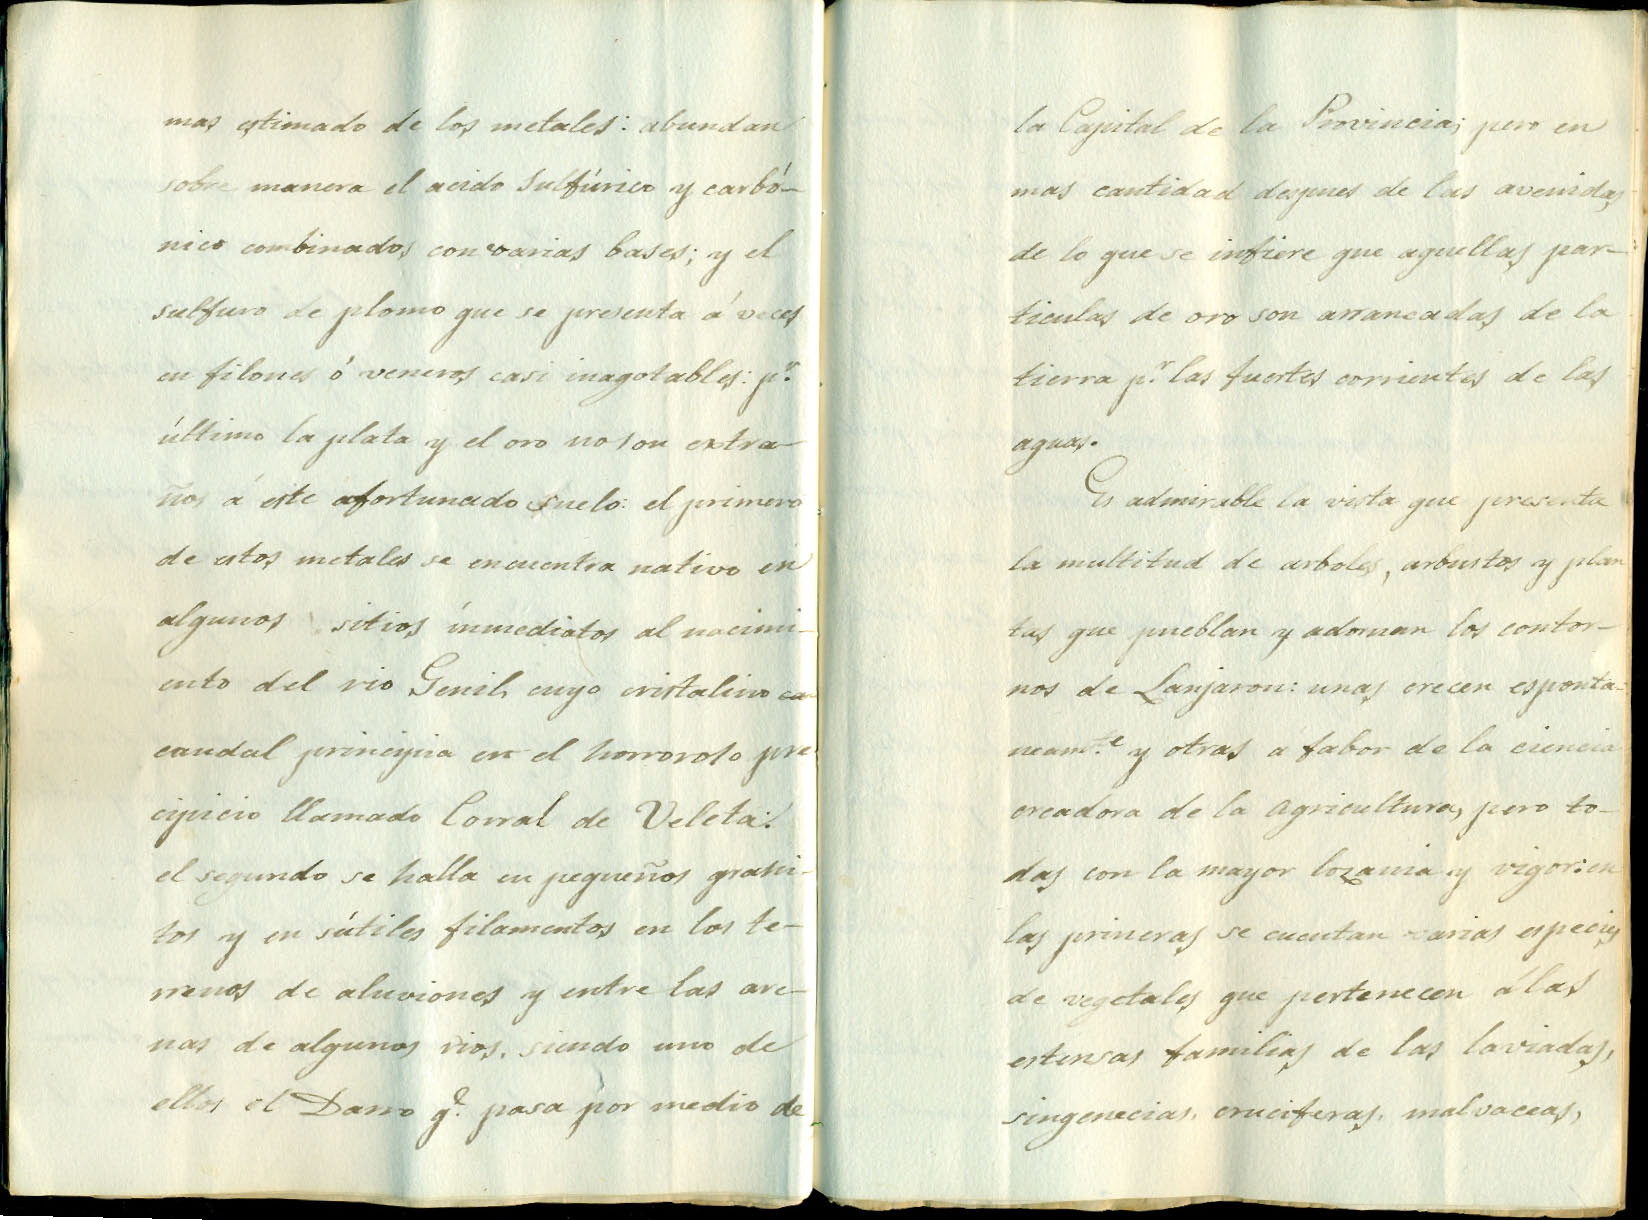 mas estimado de los metales: abundan
sobre manera el acido sulfúrico y carbó-
nico combinados con varias bases; y el
sulfuro de plomo que se presenta á veces
en filones ó veneros casi inagotables: p.r
último la plata y el oro no son extra-
ños á este afortunado suelo: el primero
de estos metales se encuentra nativo en
algunos sitios inmediatos al nacimi-
ento del rio Genil, cuyo cristalino ca
caudal principia en el horroroso pre
cipicio llamado Corral de Veleta:
el segundo se halla en pequeños grani-
tos y en sútiles filamentos en los te-
rrenos de aluviones y entre las are-
nas de algunos rios, siendo uno de
ellos el Darro q.e pasa por medio de
la Capital de la Provincia; pero en
mas cantidad despues de las avenidas
de lo que se infiere que aquellas par-
ticulas de oro son arrancadas de la
tierra p.r las fuertes corrientes de las
aguas.
Es admirable la vista que presenta
la multitud de arboles, arbustos y plan
tas que pueblan y adornan los contor-
nos de Lanjaron: unas crecen esponta-
neam.te y otras á fabor de la ciencia
creadora de la agricultura, pero to-
das con la mayor lozania y vigor: en
las primeras se cuentan varias especies
de vegetales que pertenecen á las
estensas familias de las laviadas,
singenecias, cruciferas, malvaceas,